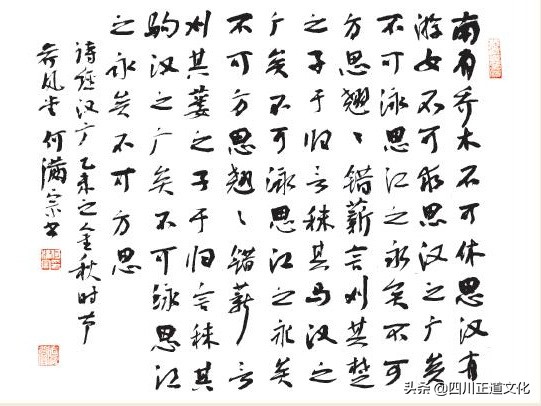 南有乔木不可休思汉有
游女不可求思汉之广矣
不可泳思江之永矣不可
方思翘〻错薪言刈其楚
之子于归言秣其马汉之
广矣不可泳思江之永矣
不可方思翘〻错薪言
刈其蒌之子于归言秣其
驹汉之广矣不可泳思江
之永矣不可方思
诗经汉广乙未之金秋时节
荷风堂何满宗书
头条 @四川正道文化